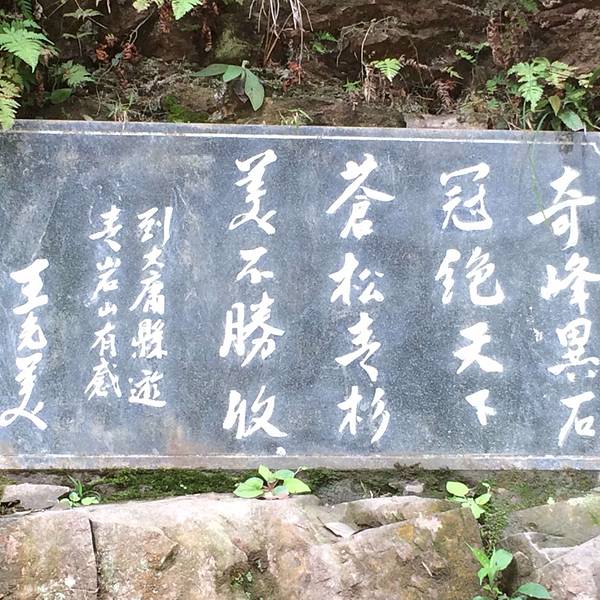 奇峰異石
冠绝天下
蒼松青杉
美不勝收
到大庸縣遊
青岩山有感
王光美